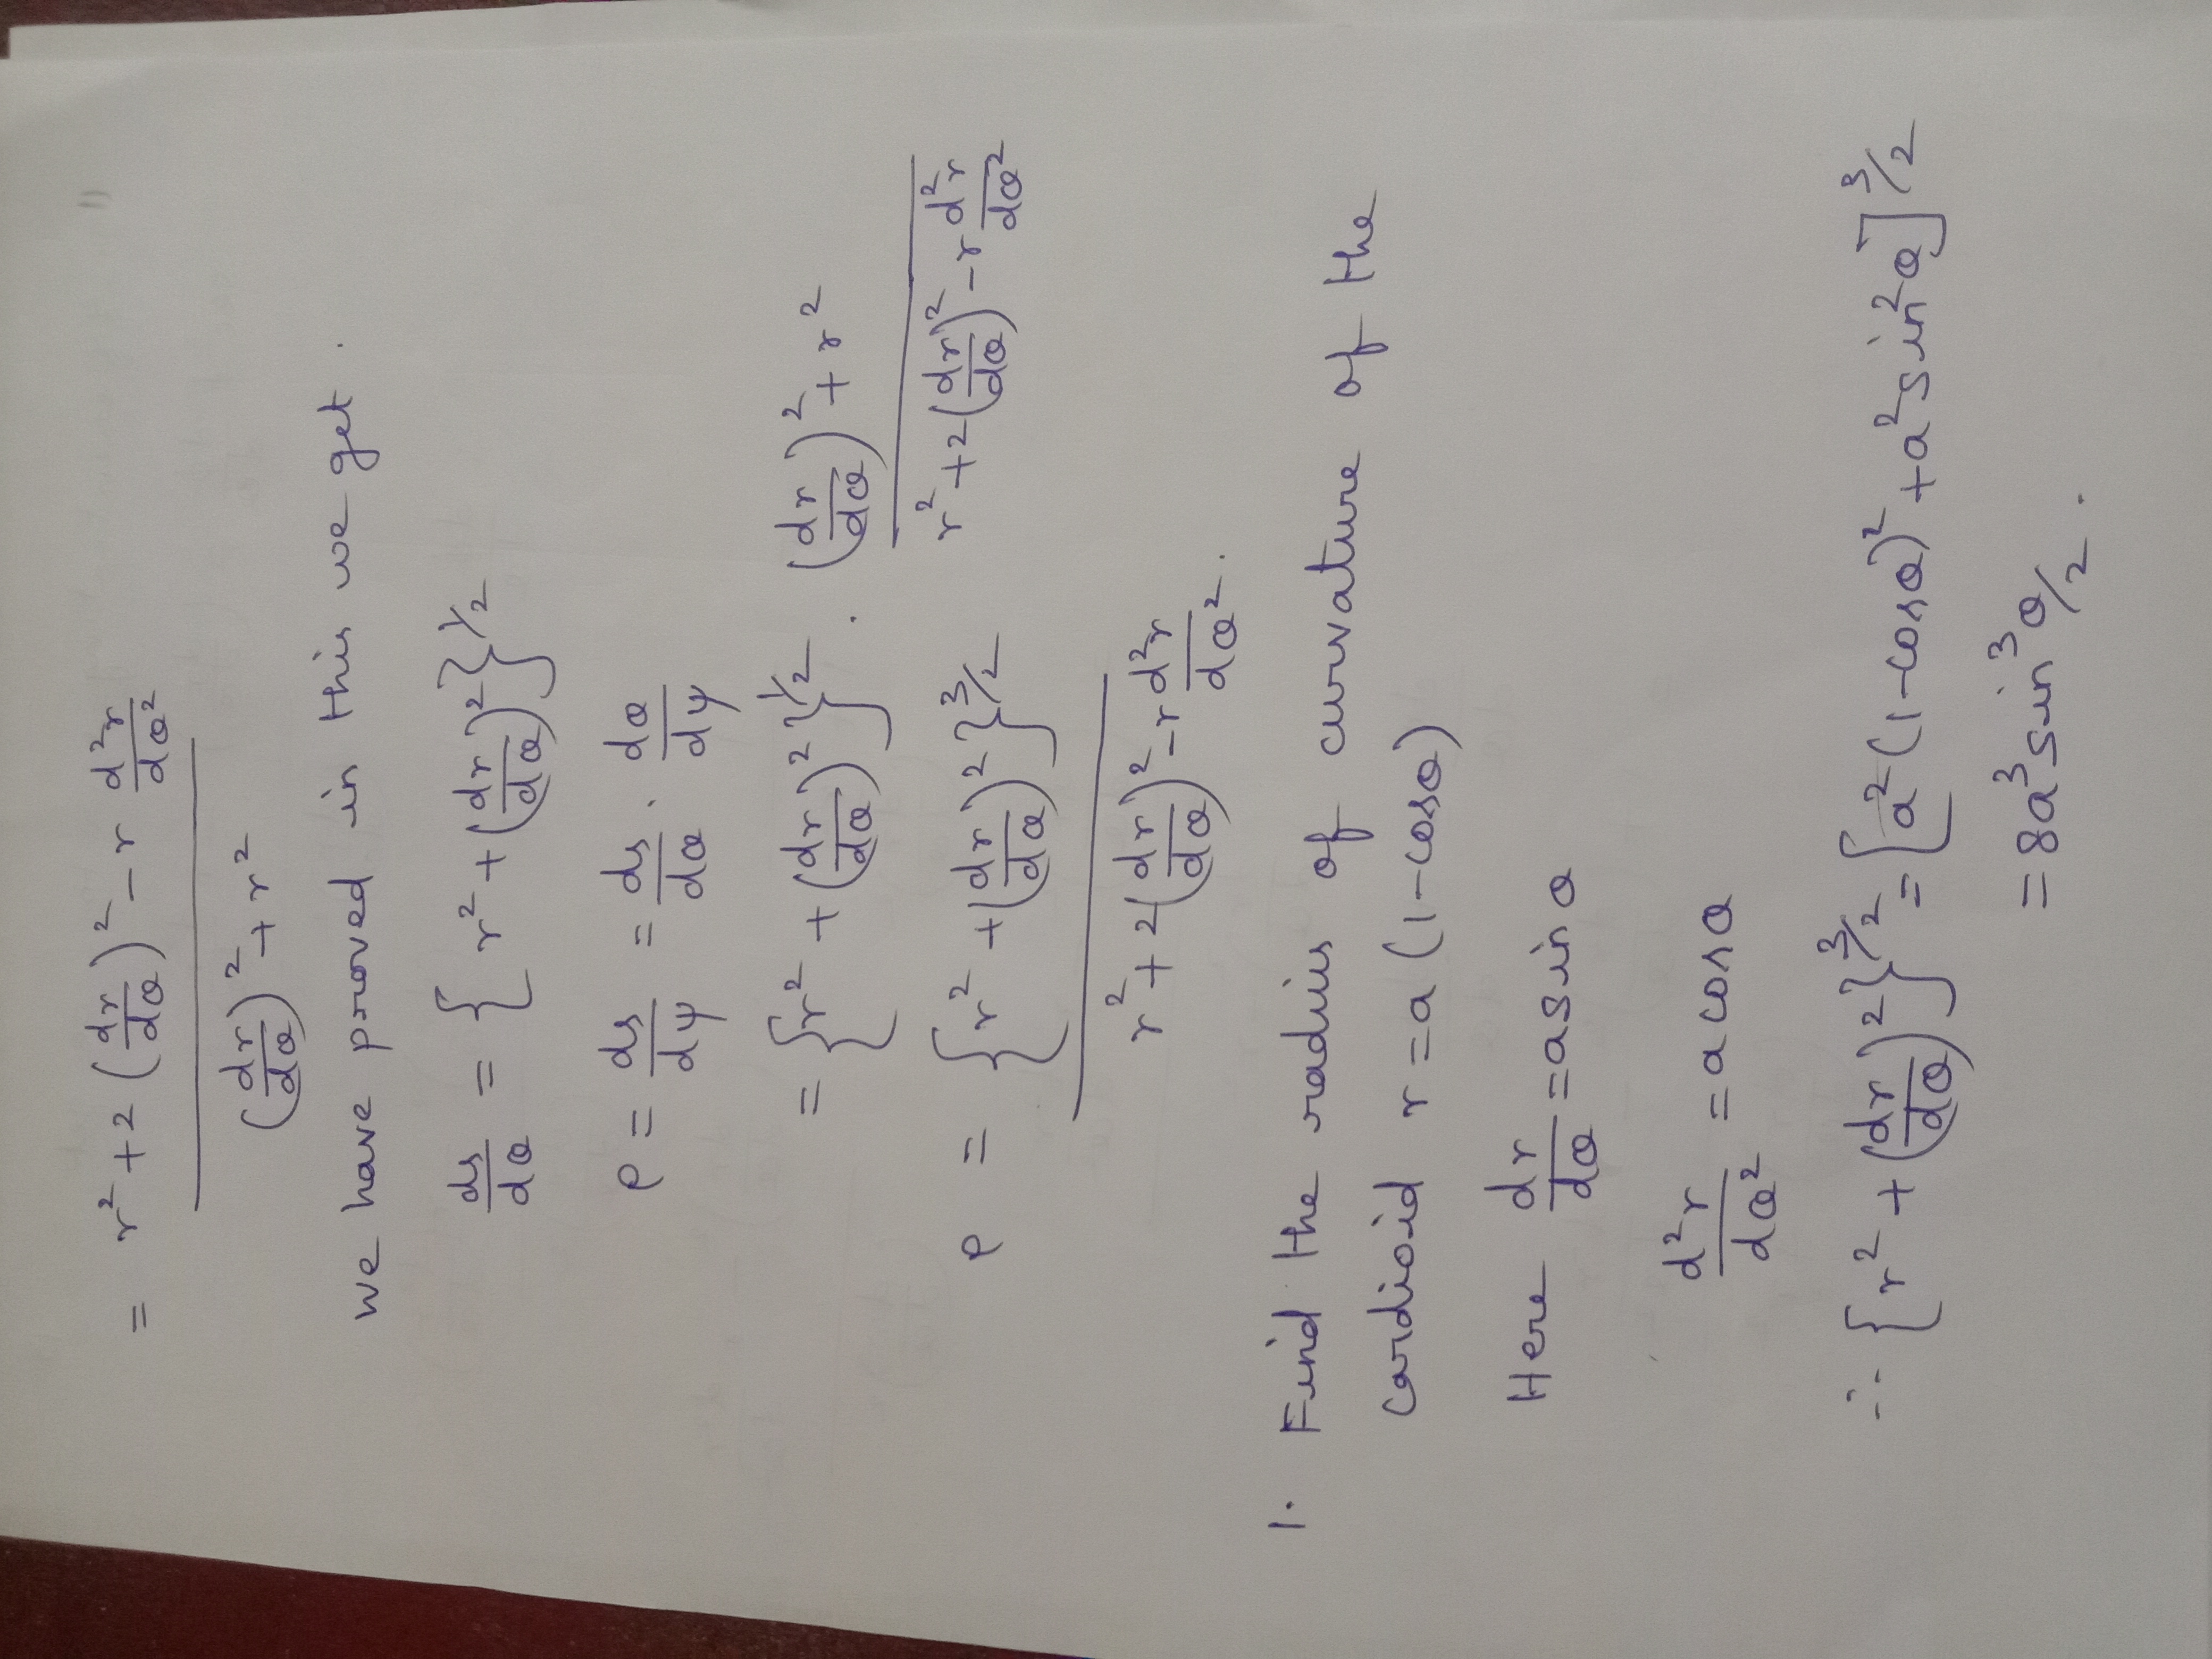 = r² + 2 (dr/dθ)² - r d²r/dθ² / (dr/dθ)² + r²
we have proved in this we get.
ds/dθ = { r² + (dr/dθ)² }^1/2
ρ = ds/dψ = ds/dθ . dθ/dψ
= { r² + (dr/dθ)² }^1/2 . (dr/dθ)² + r² / r² + 2(dr/dθ)² - r d²r/dθ²
ρ = { r² + (dr/dθ)² }^3/2 / r² + 2(dr/dθ)² - r d²r/dθ².
1. Find the radius of curvature of the
cardioid r = a (1 - cosθ)
Here dr/dθ = a sin θ
d²r/dθ² = a cosθ
∴ { r² + (dr/dθ)² }^3/2 = [a² (1 - cosθ)² + a² sin²θ]^3/2
= 8a³ sin³ θ/2.